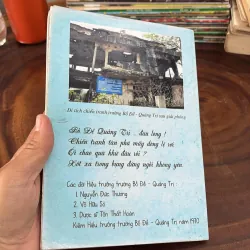 Di tích chiến tranh trường Bồ Đề - Quảng Trị sau giải phóng
Bồ Đề Quảng Trị .. đau lòng !
Chiến tranh tàn phá mấy dòng lệ rơi !
Ai chưa qua khứ đâu rồi ?
Xót xa trong bụng đứng ngồi không yên.
Các đời Hiệu trưởng trường Bồ Đề - Quảng Trị :
1. Nguyễn Đức Thương
2. Võ Hữu Sô
3. Dược sĩ Tôn Thất Hoàn
Kiêm Hiệu trưởng trường Bồ Đề - Quảng Trị năm 1970